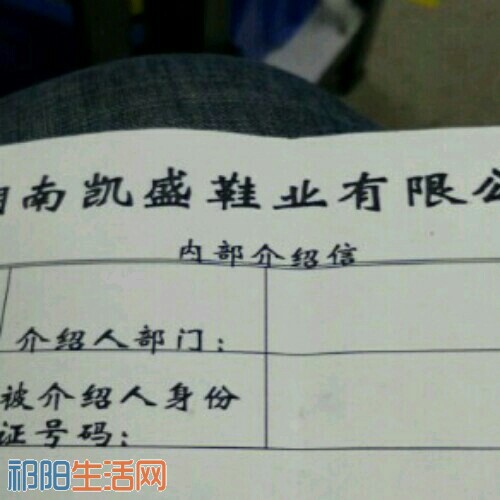 湖南凯盛鞋业有限公
内部介绍信
介绍人部门：
被介绍人身份
证号码：
祁阳生活网